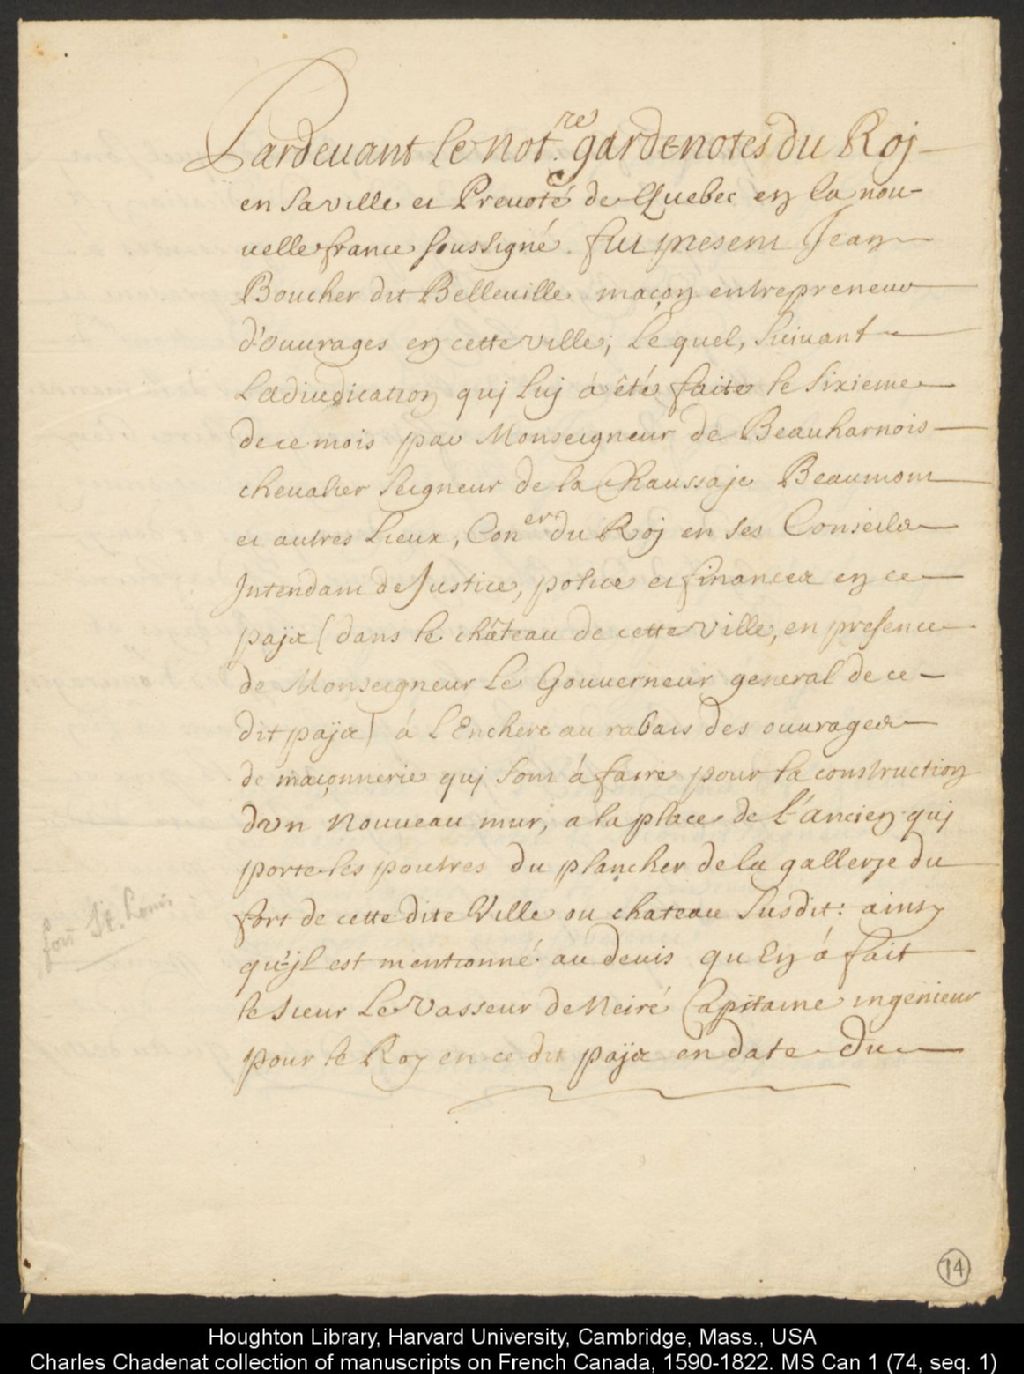 Pardevant le not.re gardenotes du Roj
en sa ville et Prevoté de Quebec en la nou-
velle france soussigné. fut present Jean
Boucher dit Belleville maçon entrepreneur
d'ouurages en cette ville, Lequel, suiuant
Ladiudication quj luj à été faite le sixieme
de ce mois par Monseigneur de Beauharnois
chevalier seigneur de la Chaussaje Beaumont
et autres Lieux, Con.er du Roj en ses Conseils
Intendant de Justice, police et finances en ce
païs (dans le château de cette ville, en presence
de Monseigneur Le Gouverneur general de ce-
dit païs) à l'Enchere au rabais des ouurages
de maçonnerie quj sont à faire pour la construction
dvn nouueau mur, a la place de l'ancien quj
porte les poutres du plancher de la gallerje du
fort de cette dite Ville ou chateau susdit: ainsy
qu'jl est mentionné au devis qu'En à fait
le sieur Le Vasseur de Neiré Capitaine ingenieur
pour le Roy en ce dit païs en date du
fort St. Louis
74
Houghton Library, Harvard University, Cambridge, Mass., USA
Charles Chadenat collection of manuscripts on French Canada, 1590-1822. MS Can 1 (74, seq. 1)